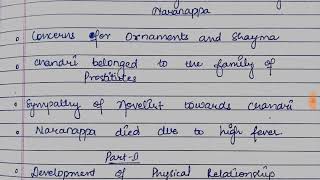 Naranappa
• Concerns for Ornaments and Shayma
• Chandri belonged to the family of
Prostitutes
• Sympathy of Novelist towards Chandri
• Naranappa died due to high fever.
Part-II
• Development of Physical Relationship